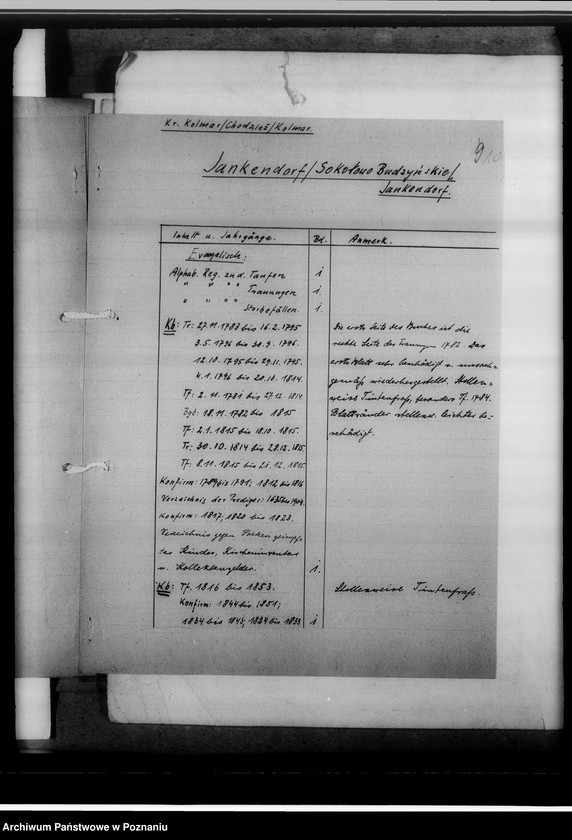 Kr. Kolmar/Chodzież/Kolmar.
910
Jankendorf/Sokołowo Budzyńskie/
Jankendorf.
Inhalt u. Jahrgänge. Bd. Anmerk.
Evangelisch:
Alphab. Reg. zu d. Taufen 1
" " " " Trauungen 1.
" " " " Sterbefällen 1.
Kb: Tr: 27.11.1783 bis 16.2.1795
3.5.1796 bis 30.9.1796.
12.10.1795 bis 29.11.1795.
4.1.1796 bis 20.10.1814.
Tf: 2.11.1781 bis 27.12.1814.
Bgb: 18.11.1782 bis 1815
Tf: 2.1.1815 bis 18.10.1815.
Tr: 30.10.1814 bis 28.12.1815.
Tf: 8.11.1815 bis 26.12.1815.
Konfirm: 1789 bis 1791; 1812 bis 1816
Verzeichnis der Prediger: 1635 bis 1904.
Konfirm: 1817; 1820 bis 1823.
Verzeichnis gegen Pocken geimpf-
ter Kinder, Kircheninventar
u. Kollektengelder. 1.
Die erste Seite des Buches ist die
rechte Seite des Trauungen 1782. Das
erste Blatt sehr beschädigt u. unsach-
gemäß wiederhergestellt. Stellen-
weise Tintenfraß, besonders Tf. 1784.
Blattränder stellenw. leichter be-
schädigt.
Kb: Tf. 1816 bis 1853.
Konfirm: 1844 bis 1851;
1834 bis 1843; 1824 bis 1833 1
Stellenweise Tintenfraß.
Archiwum Państwowe w Poznaniu